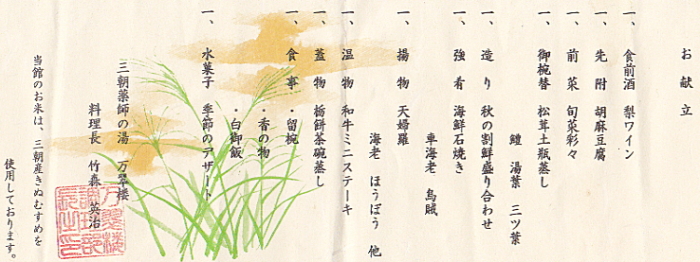 お献立
一、食前酒 梨ワイン
一、先附 胡麻豆腐
一、前菜 旬菜彩々
一、御椀替 松茸土瓶蒸し
鱧 湯葉 三ツ葉
一、造り 秋の割鮮盛り合わせ
一、強肴 海鮮石焼き
車海老 烏賊
一、揚物 天婦羅
海老 ほうぼう 他
一、温物 和牛ミニステーキ
一、蓋物 栃餅茶碗蒸し
一、食事 ・留椀
・香の物
・白御飯
一、水菓子 季節のデザート
三朝薬師の湯 万翠楼
料理長 竹森 英治
当館のお米は、三朝産きぬむすめを
使用しております。